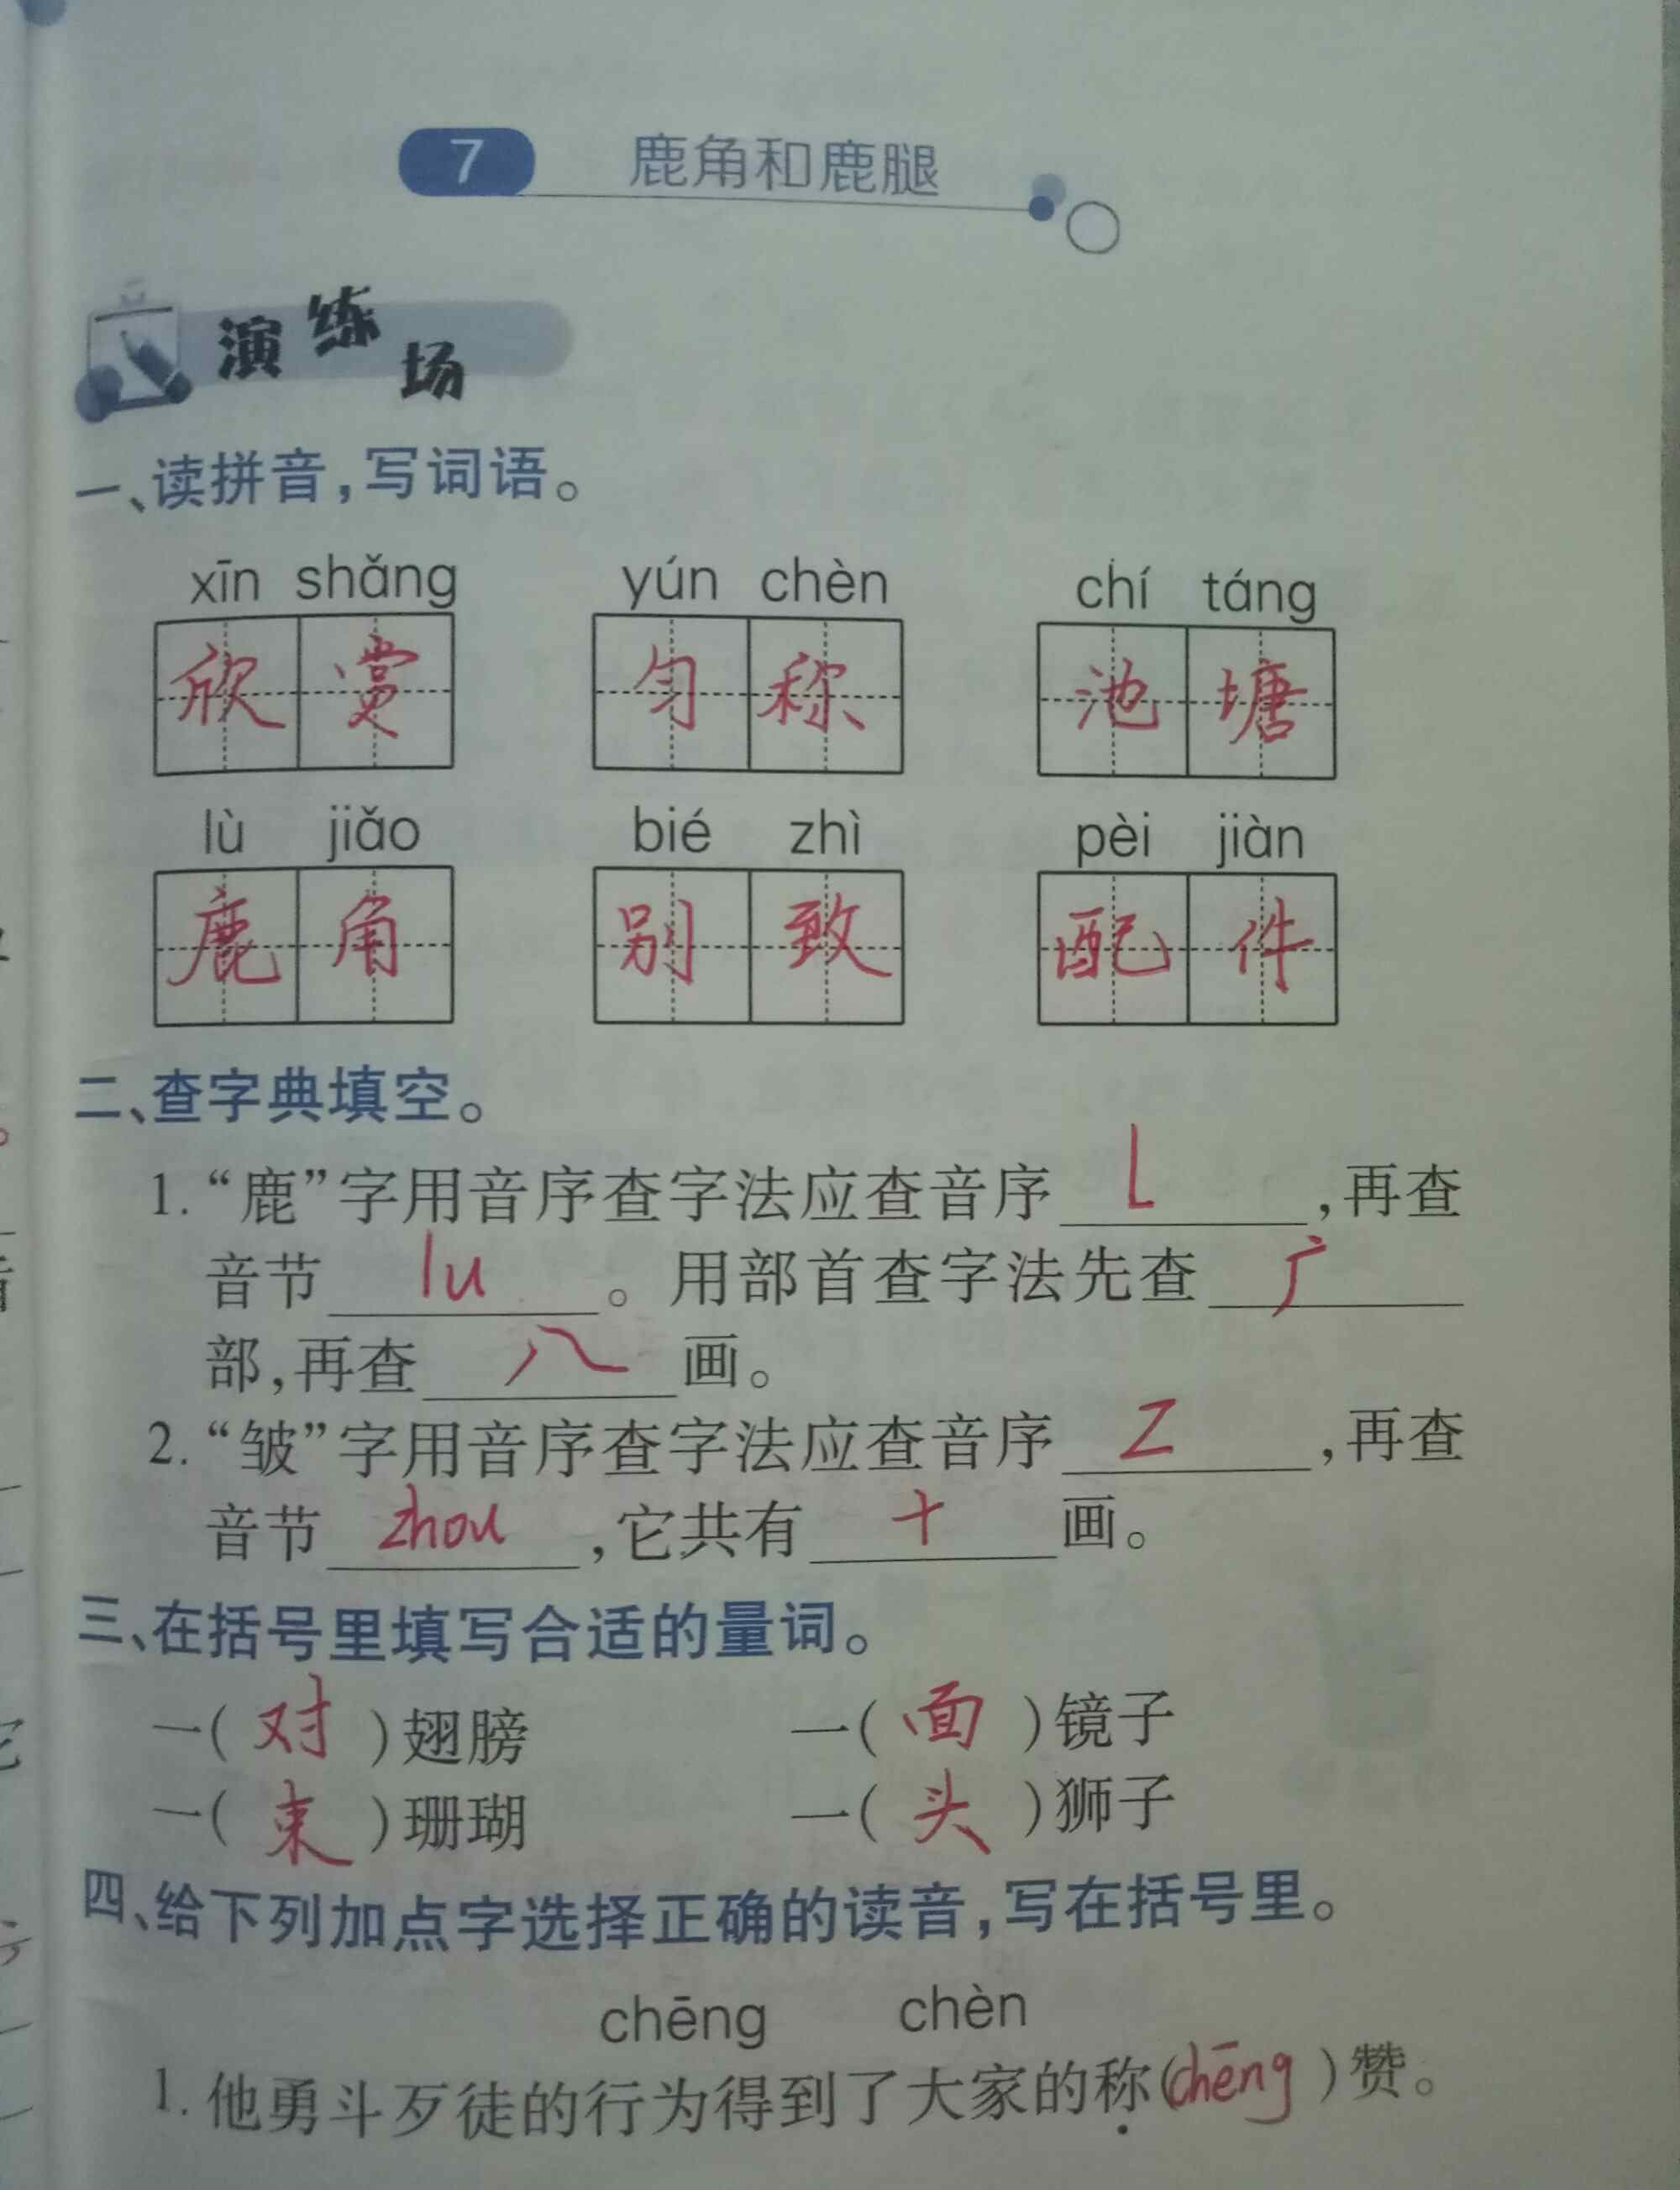 7 鹿角和鹿腿
演练场
一、读拼音,写词语。
xīn shǎng yún chèn chí táng
欣赏 匀称 池塘
lù jiǎo bié zhì pèi jiàn
鹿角 别致 配件
二、查字典填空。
1. “鹿”字用音序查字法应查音序 L ,再查
音节 lu 。用部首查字法先查 广
部,再查 八 画。
2. “皱”字用音序查字法应查音序 Z ,再查
音节 zhou ,它共有 十 画。
三、在括号里填写合适的量词。
一( 对 )翅膀 一( 面 )镜子
一( 束 )珊瑚 一( 头 )狮子
四、给下列加点字选择正确的读音,写在括号里。
chēng chèn
1. 他勇斗歹徒的行为得到了大家的称(chēng)赞。